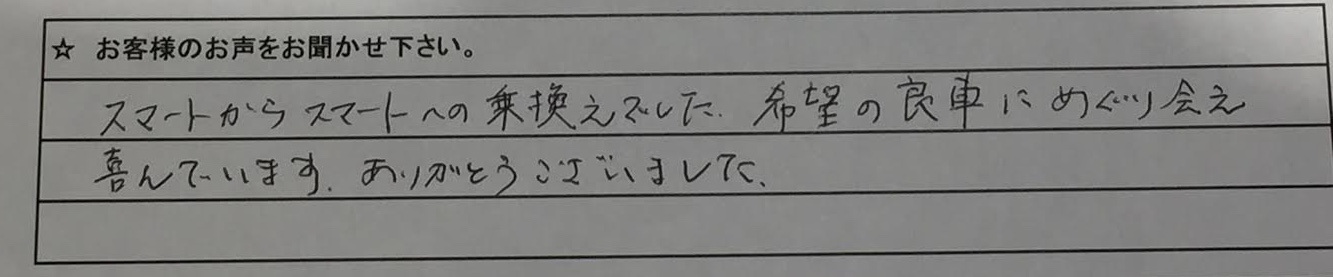 ☆ お客様のお声をお聞かせ下さい。
スマートからスマートへの乗換えでした。希望の良車にめぐり会え
喜んでいます。ありがとうございました。